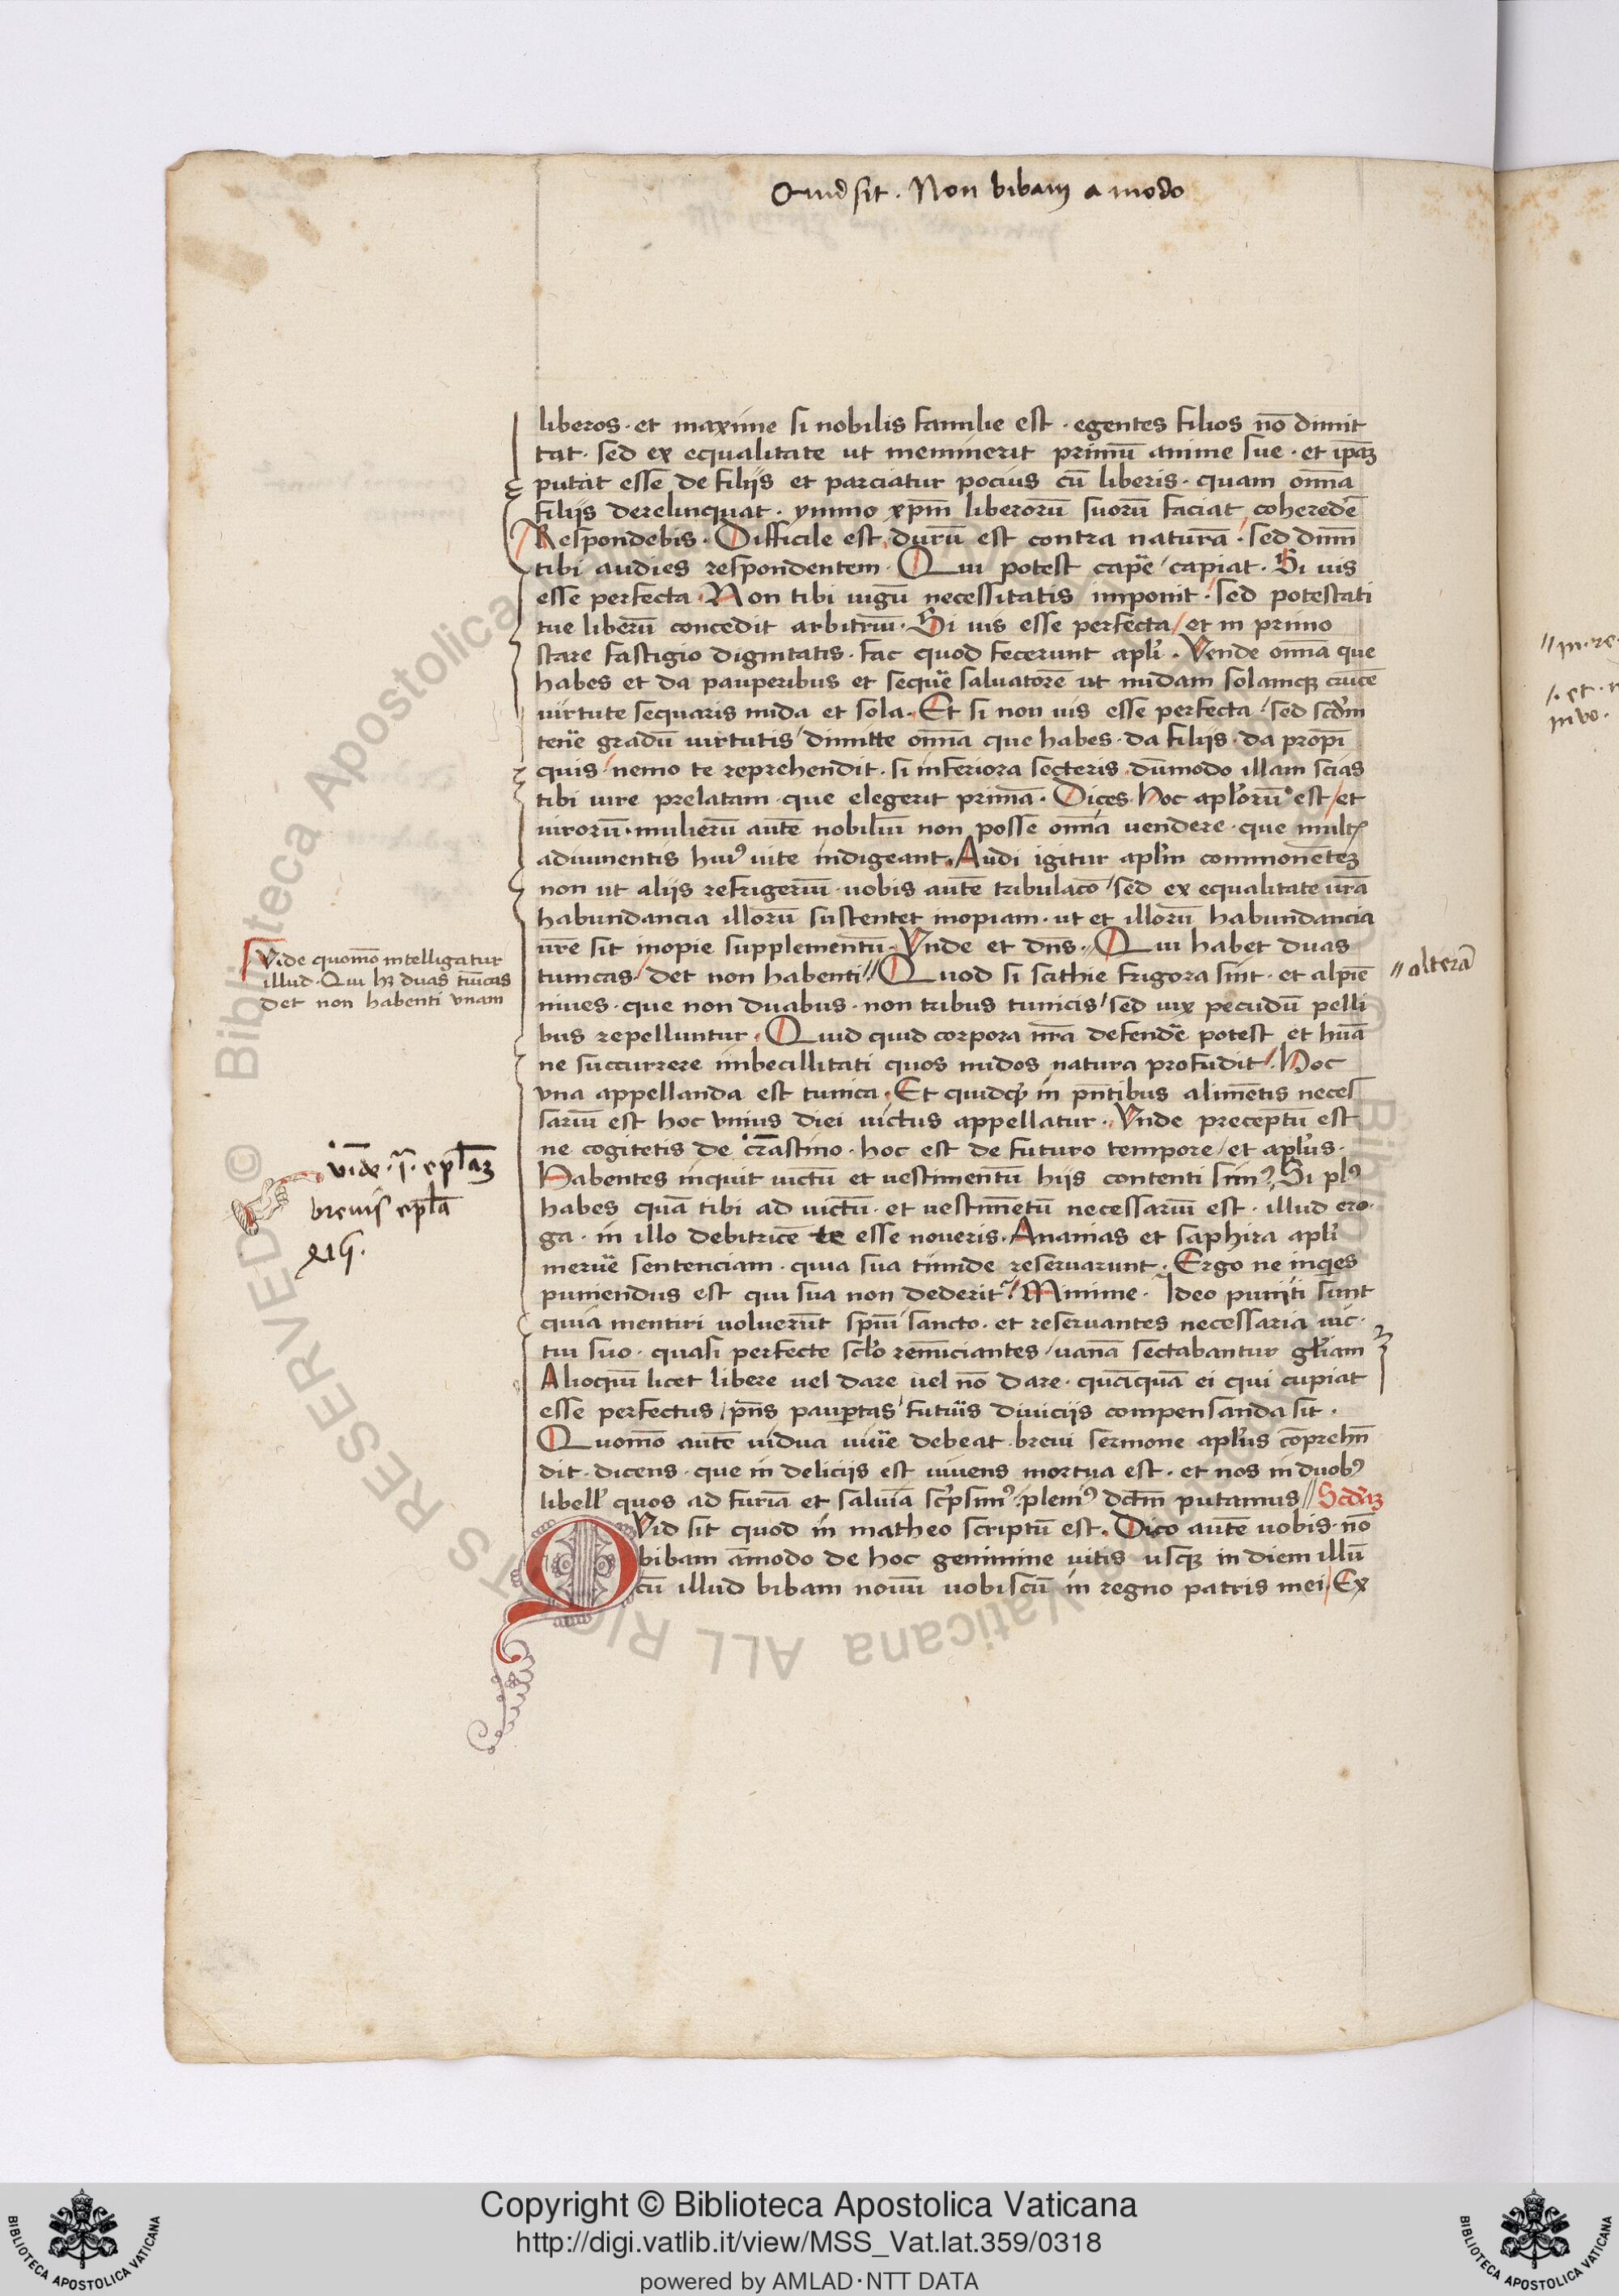 Quid sit . Non bibam a modo
liberos · et maxime si nobilis familie est · egentes filios nō dimit
tat · sed ex equalitate ut meminerit primū anime sue · et ip̄aꝫ
putat esse de filijs et parciatur pocius cū liberis · quam om̄a
filijs derelinquat · ymmo xp̄m liberorū suorū faciat / coheredē
Respondebis · Difficile est durū est contra naturā · sed dn̄m
tibi audies respondentem · Qui potest cape᷑ / capiat · Si uis
esse perfecta · Non tibi iugū necessitatis imponit · sed potestati
tue liberū concedit arbitriū · Si uis esse perfecta / et in primo
stare fastigio dignitatis · fac quod fecerunt apl̄i · Vende om̄a que
habes et da pauperibus et seque᷑ saluatorē ut nudam solamqꝫ crucē
uirtute sequaris nuda et sola · Et si non uis esse perfecta / sed scd̄m
tene᷑ gradū uirtutis / dimitte om̄a que habes · da filijs · da propī
quis / nemo te reprehendit · si inferiora secteris · dūmodo illam scias
tibi iure prelatam · que elegerit primā · Dices · Hoc apl̄orū est / et
uirorū · mulierū autē nobiliū non posse om̄ia uendere · que mult᷑
adiumentis huiꝰ uite indigeant · Audi igitur apl̄m commonentēꝫ
non ut alijs refrigeriū · uobis autē tribulacō / sed ex equalitate ur̄a
habundancia illorū sustentet inopiam · ut et illorū habundancia
ur̄e sit inopie supplementū · Vnde et dn̄s // Qui habet duas
tunicas / det non habenti // Quod si scithie frigora sint · et alpīe
niues · que non duabus · non tribus tunicis / sed uix pecudū pelli
bus repelluntur · Quid quid corpora nr̄a defende᷑ potest et hūa
ne succurrere imbecillitati quos nudos natura profudit / Hoc
vna appellanda est tunica · Et quidqͥd in pn̄tibus alimētis neces
sariū est hoc vnius diei uictus appellatur · Vnde preceptū est
ne cogitetis de cr̄astino · hoc est de futuro tempore / et apl̄us ·
Habentes inquit uictū et vestimentū hijs contenti simꝰ · Si plꝰ
habes quā tibi ad uictū · et uestimētū necessariū est · illud ero ·
ga · in illo debitricē te esse noueris · Ananias et saphira apl̄i
merue᷑ sentenciam · quia sua timide reseruarunt · Ergo ne inqͥes
puniendus est qui sua non dederit ? Minime · Ideo punijti sunt
quia mentiri uoluerūt spūi sancto · et reseruantes necessaria uic ·
tui suo · quasi perfecte scl̄o renūciantes / uanā sectabantur gl̄iam
Alioquī licet libere uel dare uel nō dare · quāquā ei qui cupiat
esse perfectus / pn̄s paup̲tas futuīs diuicijs compensanda sit ·
Quomō autē uidua uiue᷑ debeat · breui sermone apl̄us cōprehn̄
dit · dicens · que in delicijs est uiuens mortua est · et nos in duobꝰ
libell᷑ quos ad furiā et saluiā scp̄simꝰ : pleniꝰ dc̄tm putamus // Scd̄aꝫ
QVid sit quod in matheo scriptū est · Dico autē uobis · nō
bibam āmodo de hoc genimine uitis usqꝫ in diem illū
cū illud bibam nouū uobiscū in regno patris mei / Ex
Vide quomō intelligatur
illud · Qui hꝫ duas tūicas
det non habenti vnam
// alterā
vide · epl̄aꝫ
breuis epl̄a
// in · re
/. et ·